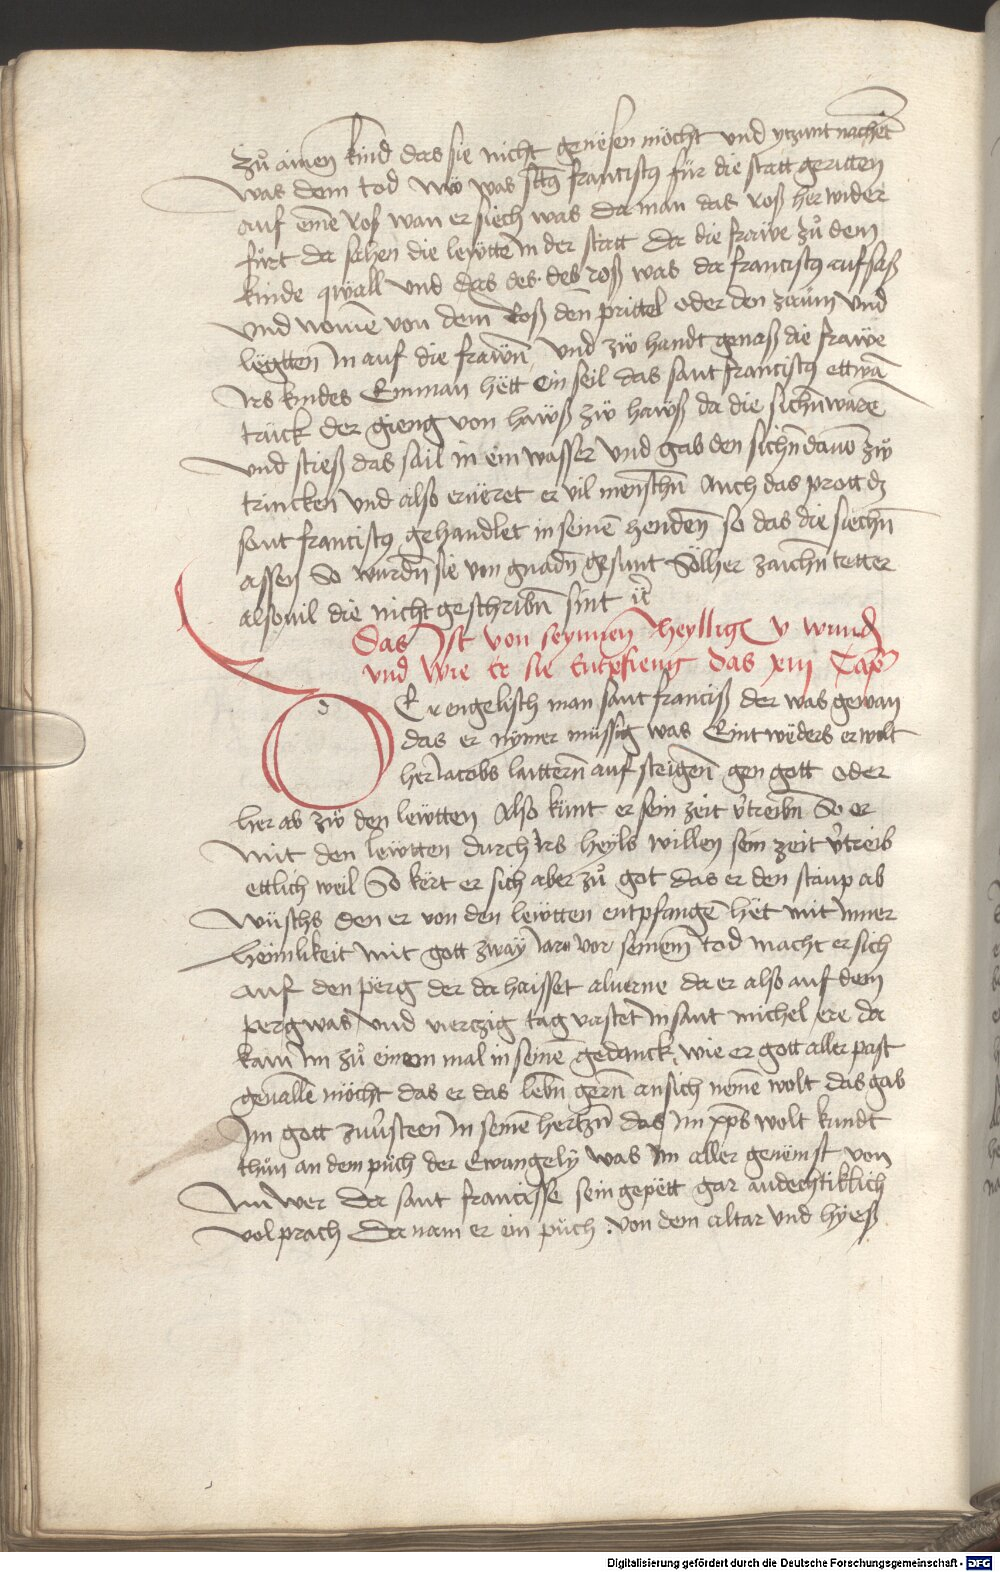 zů aimen kind das sie nicht genësen möcht und yczunt nachet
was dem tod Nw was sctus franciscus für die statt geritten
auf eine roß wan er siech was Da man das roß her wider
fůrt da sahen die lewtte in der statt Da die frawe zů dem
kinde qwall und das des des roß was da franciscus auf saß
und nomē von dem Roß den prittel oder den zaům und
legtten in auf die frawn und zw handt genaß die frawe
irs kindes Ein man hett ein seil das sant franciscus ettwā
trück der gieng von hawß zw hawß da die sichn warē
und stieß das sail in ein wasser und gab den sichn dauō zw
trincken und also ernëret er vil menschn Auch das prott dz
sant franciscus gehandlet in seinē henden so das die siechn
assen So wurdn sie von gnadn gesunt Sölher zaichn tetter
alsouil die nicht geschribn sint ꝛc
Das Ist von seynnen heyllign v wundn
und wie er sie entpfieng das xiii Cap
d
Er engelisch man sant franciß der was gewan
das er nÿmer müssig was Eintwëders er wolt
her Jacobs laittern auf steigen gen gott oder
her ab zw den lewtten Also kunt er sein zeit v̉treibn So er
mit den lewtten durch irs heyls willen sein zeit v̉treib
ettlich weil So kert er sich aber zů got das er den staup ab
wüschs den er von den lewtten entpfangē hët mit inner
heimlikeit mit gott zwaÿ iar vor seinem tod macht er sich
auf den përg der da haisset aluerne da er also auf dem
perg was und vierczig tag vastet in sant michel ere da
kam im zů einem mal in seinē gedanck wie er gott aller past
geuallē möcht das er das lebn gern an sich nemē wolt das gab
im gott zuu̓steen in seinē hertzn das im xp̄s wolt kundt
thůn an dem půch der Ewangely was im aller genëmst von
im wer Da sant francisse sein gepëtt gar andechtiklich
volprach Da nam er ein půch von dem altar und hÿeß
Digitalisierung gefördert durch die Deutsche Forschungsgemeinschaft - DFG